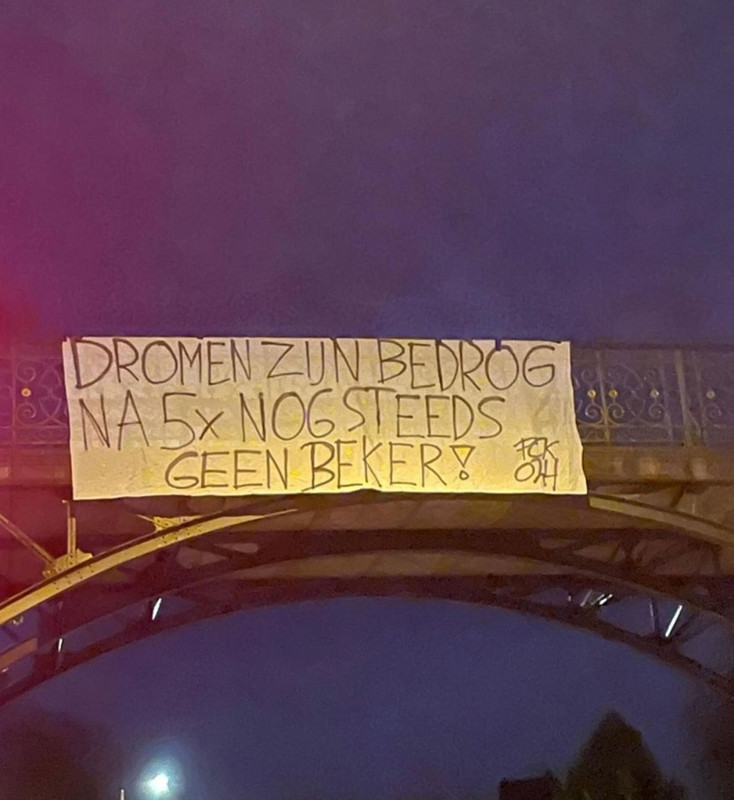 DROMEN ZIJN BEDROG
NA 5x NOG STEEDS
GEEN BEKER!
FCK
OH